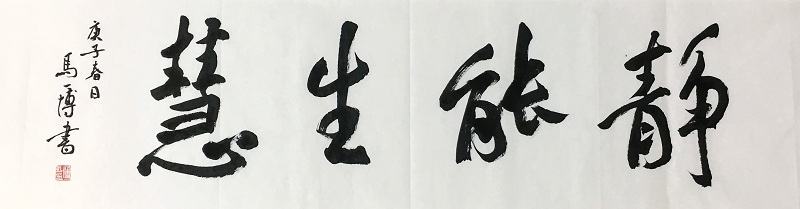 静能生慧
庚子春日
馬博書